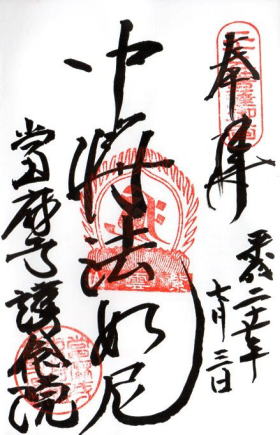 奉拝
平成二十七年
七月三日
中将法如尼
當麻寺 護念院